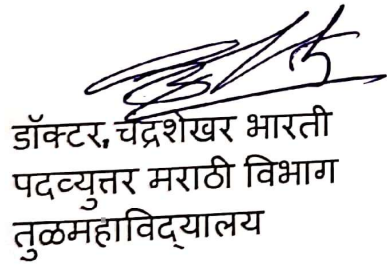 डॉक्टर, चंद्रशेखर भारती
पदव्युत्तर मराठी विभाग
तुळमहाविद्‌यालय